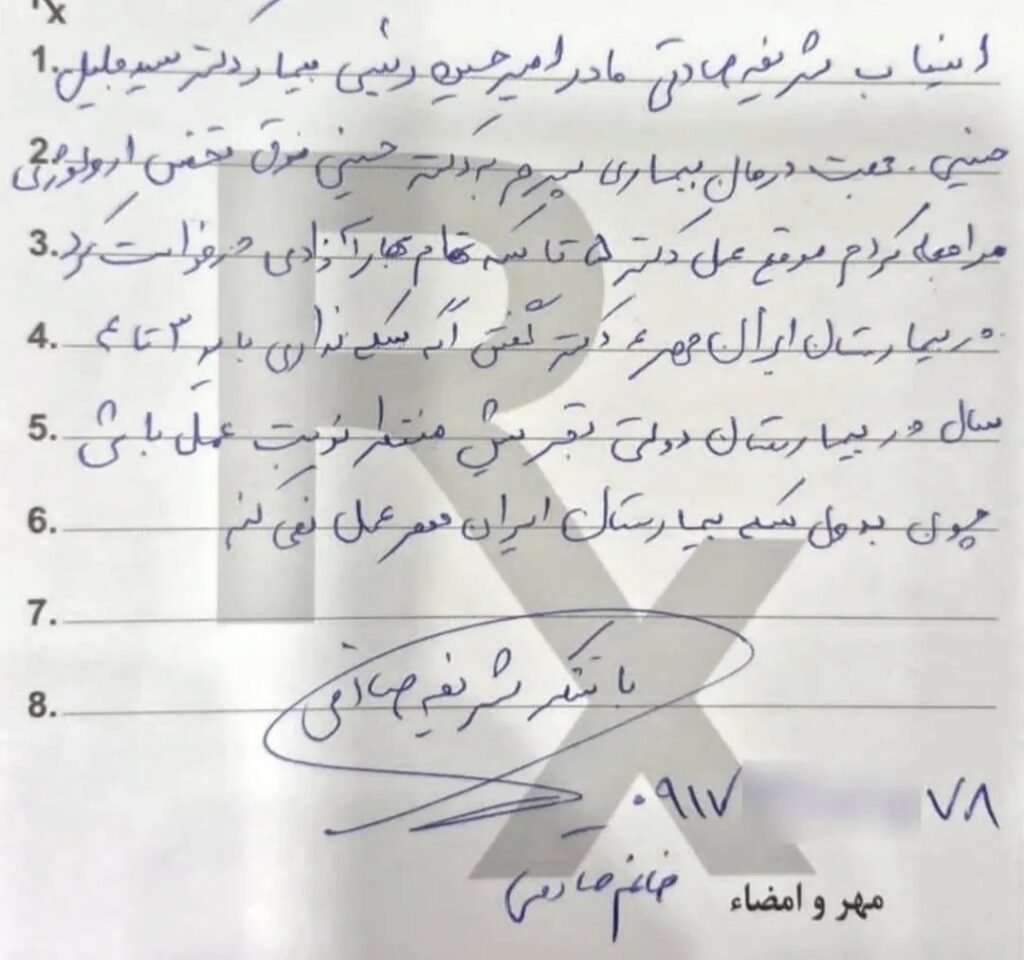 Rx
1. اینجانب شریفه صادقی مادر امیرحسین رئیسی بیمار دکتر سید جلیل
2. حسینی. جهت درمان بیماری پسرم به دکتر حسینی فوق تخصص ارولوژی
3. مراجعه کردم موقع عمل دکتر ۵ تا سکه تمام بهار آزادی درخواست کرد
4. در بیمارستان ایران مهر، دکتر گفتن اگه سکه نداری باید ۳ تا ۴
5. سال در بیمارستان دولتی تجریش منتظر نوبت عمل باشی
6. چون بدون سکه بیمارستان ایران مهر عمل نمی کنه
7.
8. با تشکر شریفه صادقی
۰۹۱۷ ۷۸
خانم صادقی
مهر و امضاء